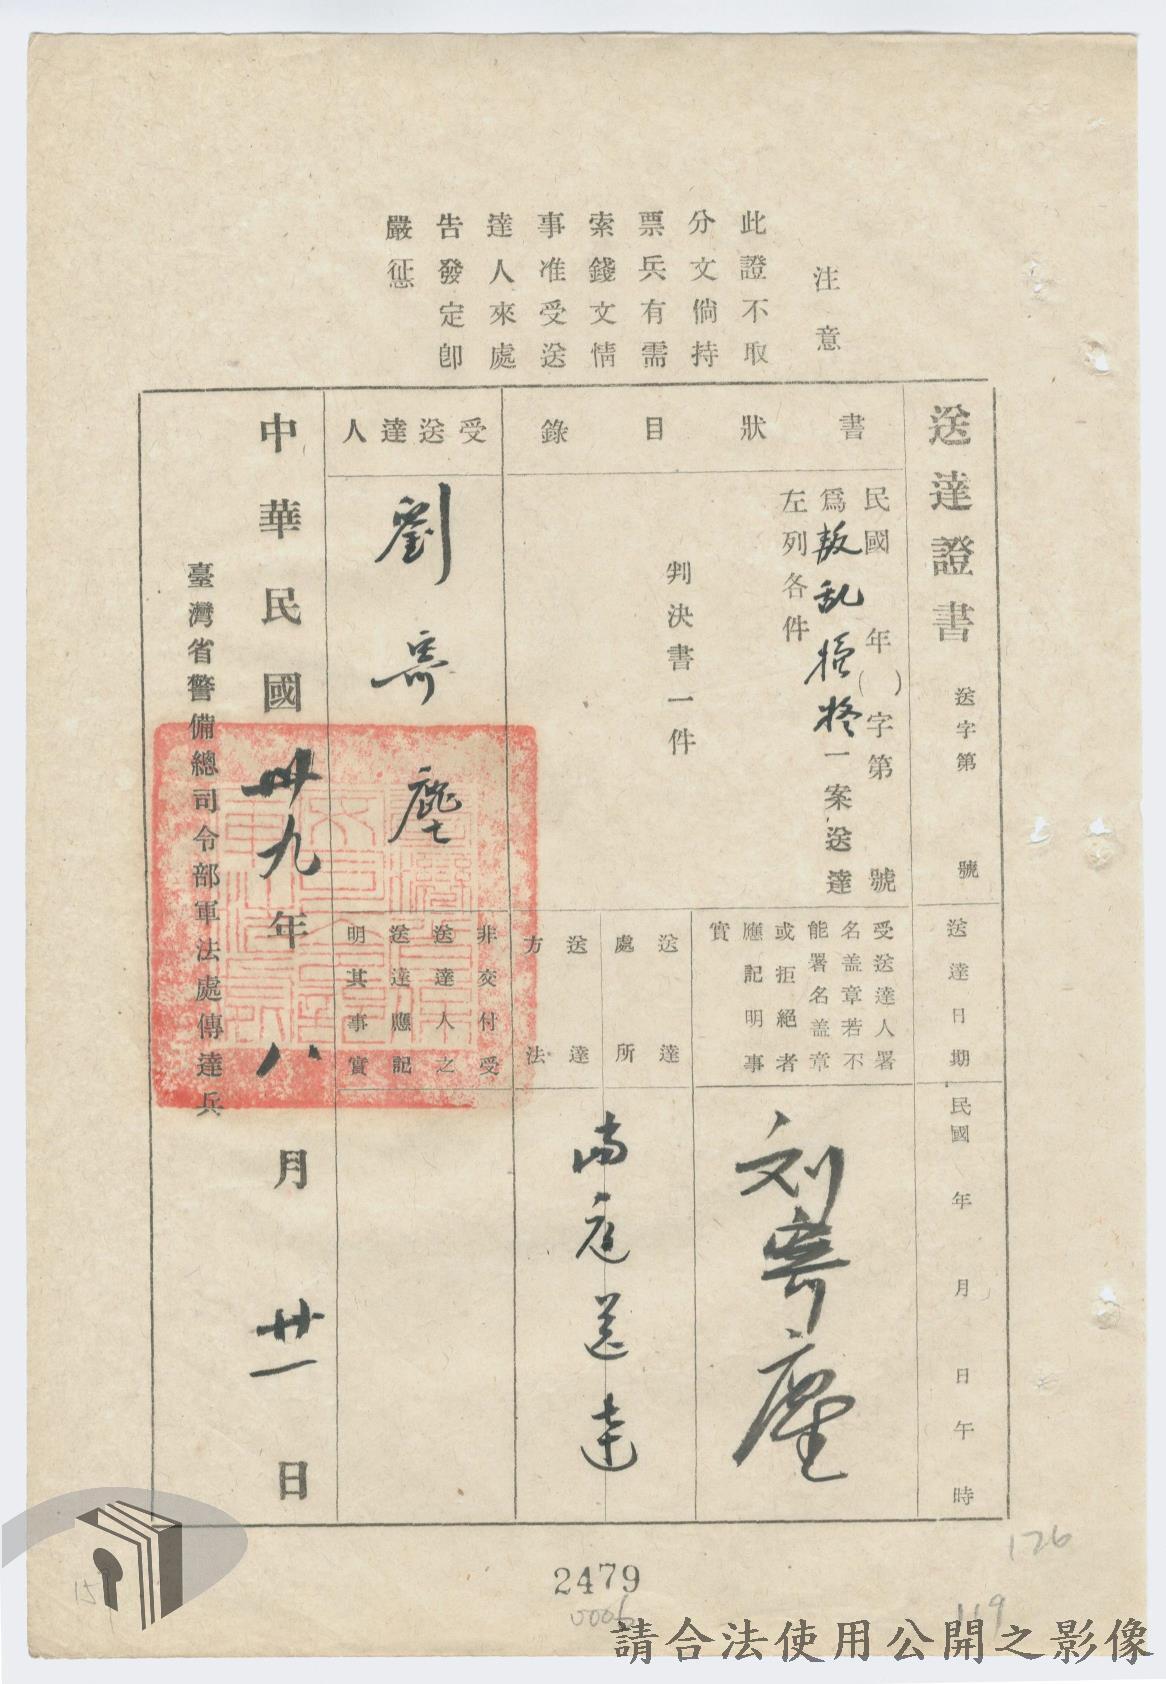 注意
此證不取
分文倘持
票兵有需
索錢文情
事准受送
達人來處
告發定卽
嚴懲
送達證書
送字第 號
送達日期
民國 年 月 日 午 時
書狀目錄
民國 年( )字第 號
爲叛乱 一案送達
左列各件
判決書一件
受送達人署
名盖章若不
能署名盖章
或拒絕者
應記明事
實
刘寄塵
送達處所
送達方法
當庭送達
受送達人
劉寄塵
非交付受
送達人之
送達應記
明其事實
中華民國卅九年八月廿一日
臺灣省警備總司令部軍法處傳達兵
2479
0006
126
119
請合法使用公開之影像